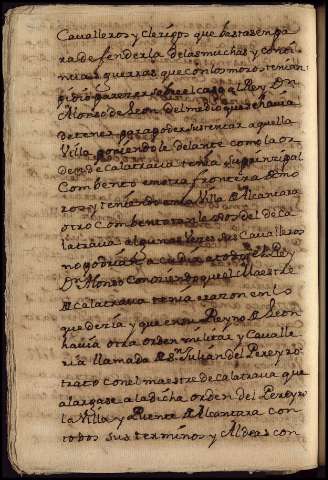 Cavalleros y Clerigos que bastasen pa
ra defenderla de las muchas y conti
nuas guerras que con los moros tenian
pidio parezer sobre el caso al Rey Dn
Alonso de Leon del medio que se havia
de tener para poder sustentar aquella
Villa poniendole delante como la or
den de Calatrava tenia su principal
Combento en otra frontera de mo
ros y teniendo en la Villa de Alcantara
otro Combento los dos del de Ca
latrava algunas Vezes sus Cavalleros
no podrian acudir a todo el Rey
Dn Alonso Conociendo que el Maestre
de Calatrava tenia razon en lo
que dezia y que en su Reyno de Leon
havia otra orden militar y Cavalle
ria llamada de Sn Julian del Pereyro
trato con el maestre de Calatrava que
alargase a la dicha orden del Pereyro
la Villa y Puente de Alcantara con
todos sus terminos y Aldeas con